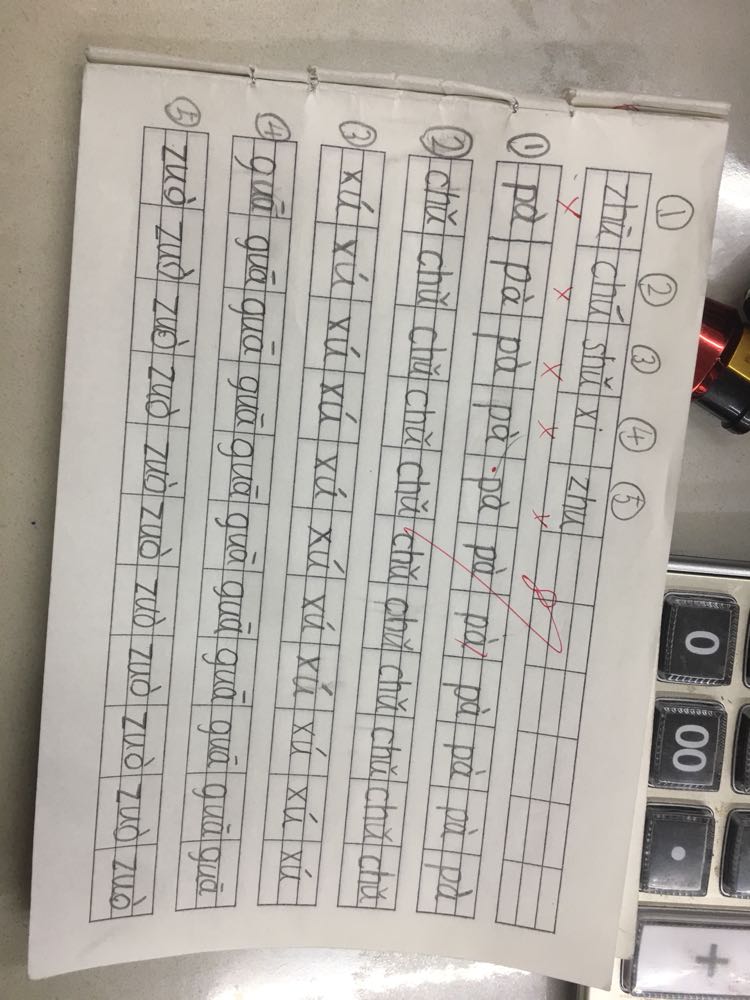 ① ② ③ ④ ⑤
zhǔ chǔ shǔ xi zhu
① pà pà pà pà pà pà pà pà pà pà pà
② chǔ chǔ chǔ chǔ chǔ chǔ chǔ chǔ chǔ chǔ chǔ
③ xú xú xú xú xú xú xú xú xú xú xú
④ guā guā guā guā guā guā guā guā guā guā guā
⑤ zuò zuò zuò zuò zuò zuò zuò zuò zuò zuò zuò
0
00
.
+